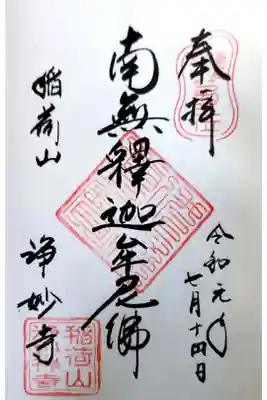 奉拝
令和元年
七月十四日
南無釋迦牟尼佛
稲荷山
淨妙寺
稲荷山